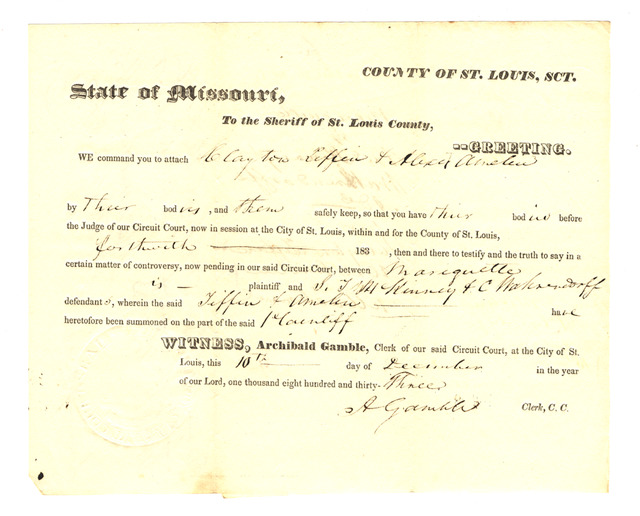 COUNTY OF ST. LOUIS, SCT.
State of Missouri,
To the Sheriff of St. Louis County,
--GREETING.
WE command you to attach Clayton Tiffin & Alexr Amelin
by Their bodies, and them safely keep, so that you have their bodies before
the Judge of our Circuit Court, now in session at the City of St. Louis, within and for the County of St. Louis,
forthwith 183 , then and there to testify and the truth to say in a
certain matter of controversy, now pending in our said Circuit Court, between Marguette
is plaintiff and McKinney & C Wahrendorff
defendants, wherein the said Tiffin & Amelin have
heretofore been summoned on the part of the said Plaintiff
WITNESS, Archibald Gamble, Clerk of our said Circuit Court, at the City of St.
Louis, this 10th day of December in the year
of our Lord, one thousand eight hundred and thirty-Three
A Gamble Clerk, C. C.